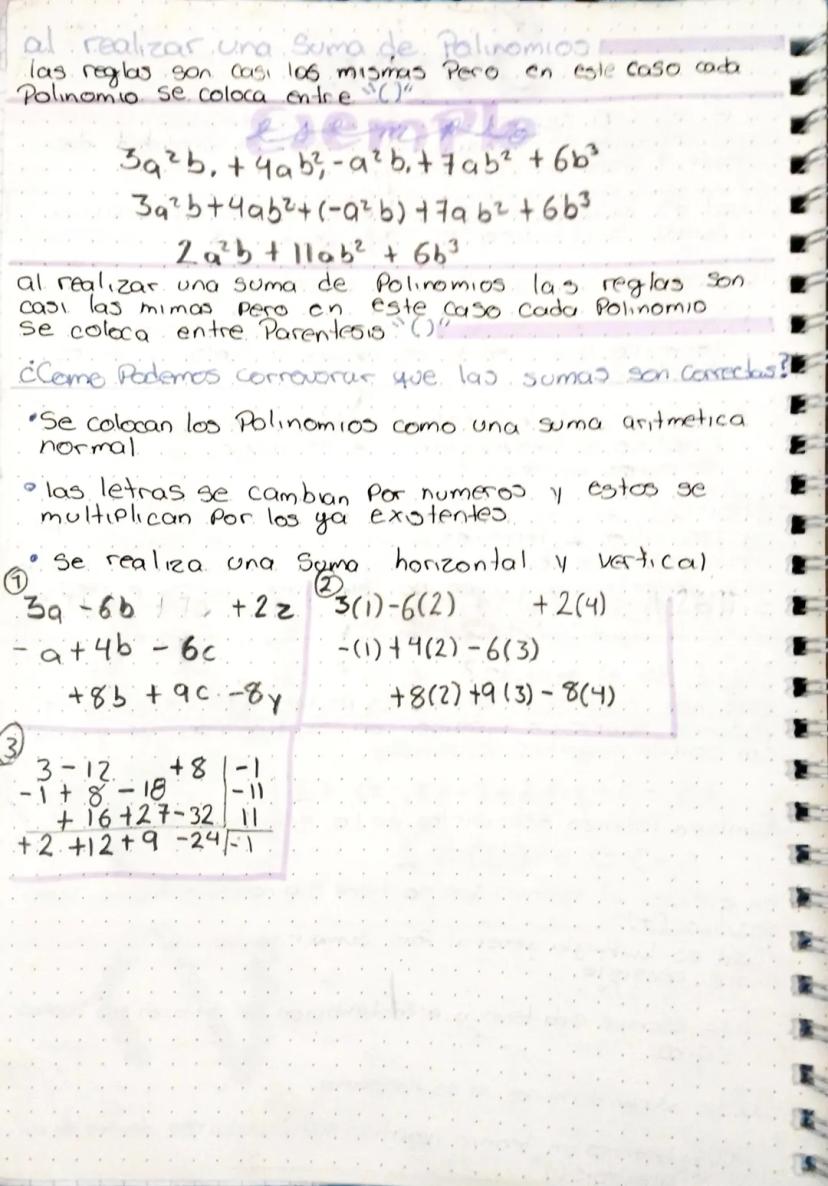 al realizar una Suma de Polinomios
las reglas son casi las mismas Pero en este caso cada
Polinomio se coloca entre "()"
ejemplo
3a²b, + 4ab², -a²b, + 7ab² + 6b³
3a²b+4ab²+(-a²b)+7ab²+6b³
2a²b + 11ab² + 6b³
al realizar una suma de Polinomios las reglas son
casi las mimas pero en este caso cada Polinomio
se coloca entre Parentesis "()"
¿Come Podemos corrovorar que las sumas son correctas?
•Se colocan los Polinomios como una suma aritmetica
normal
• las letras se cambian Por numeros y estos se
multiplican Por los ya existentes
• se realiza una Suma horizontal y vertical
①
3a -6b +2z
- a + 4b - 6c
+8b + 9c -8y
②
3(1)-6(2) +2(4)
-(1)+4(2)-6(3)
+8(2)+9(3)-8(4)
③
3-12 +8 | -1
-1 + 8 -18 | -11
+ 16+27-32 | 11
+2 +12+9 -24 | -1